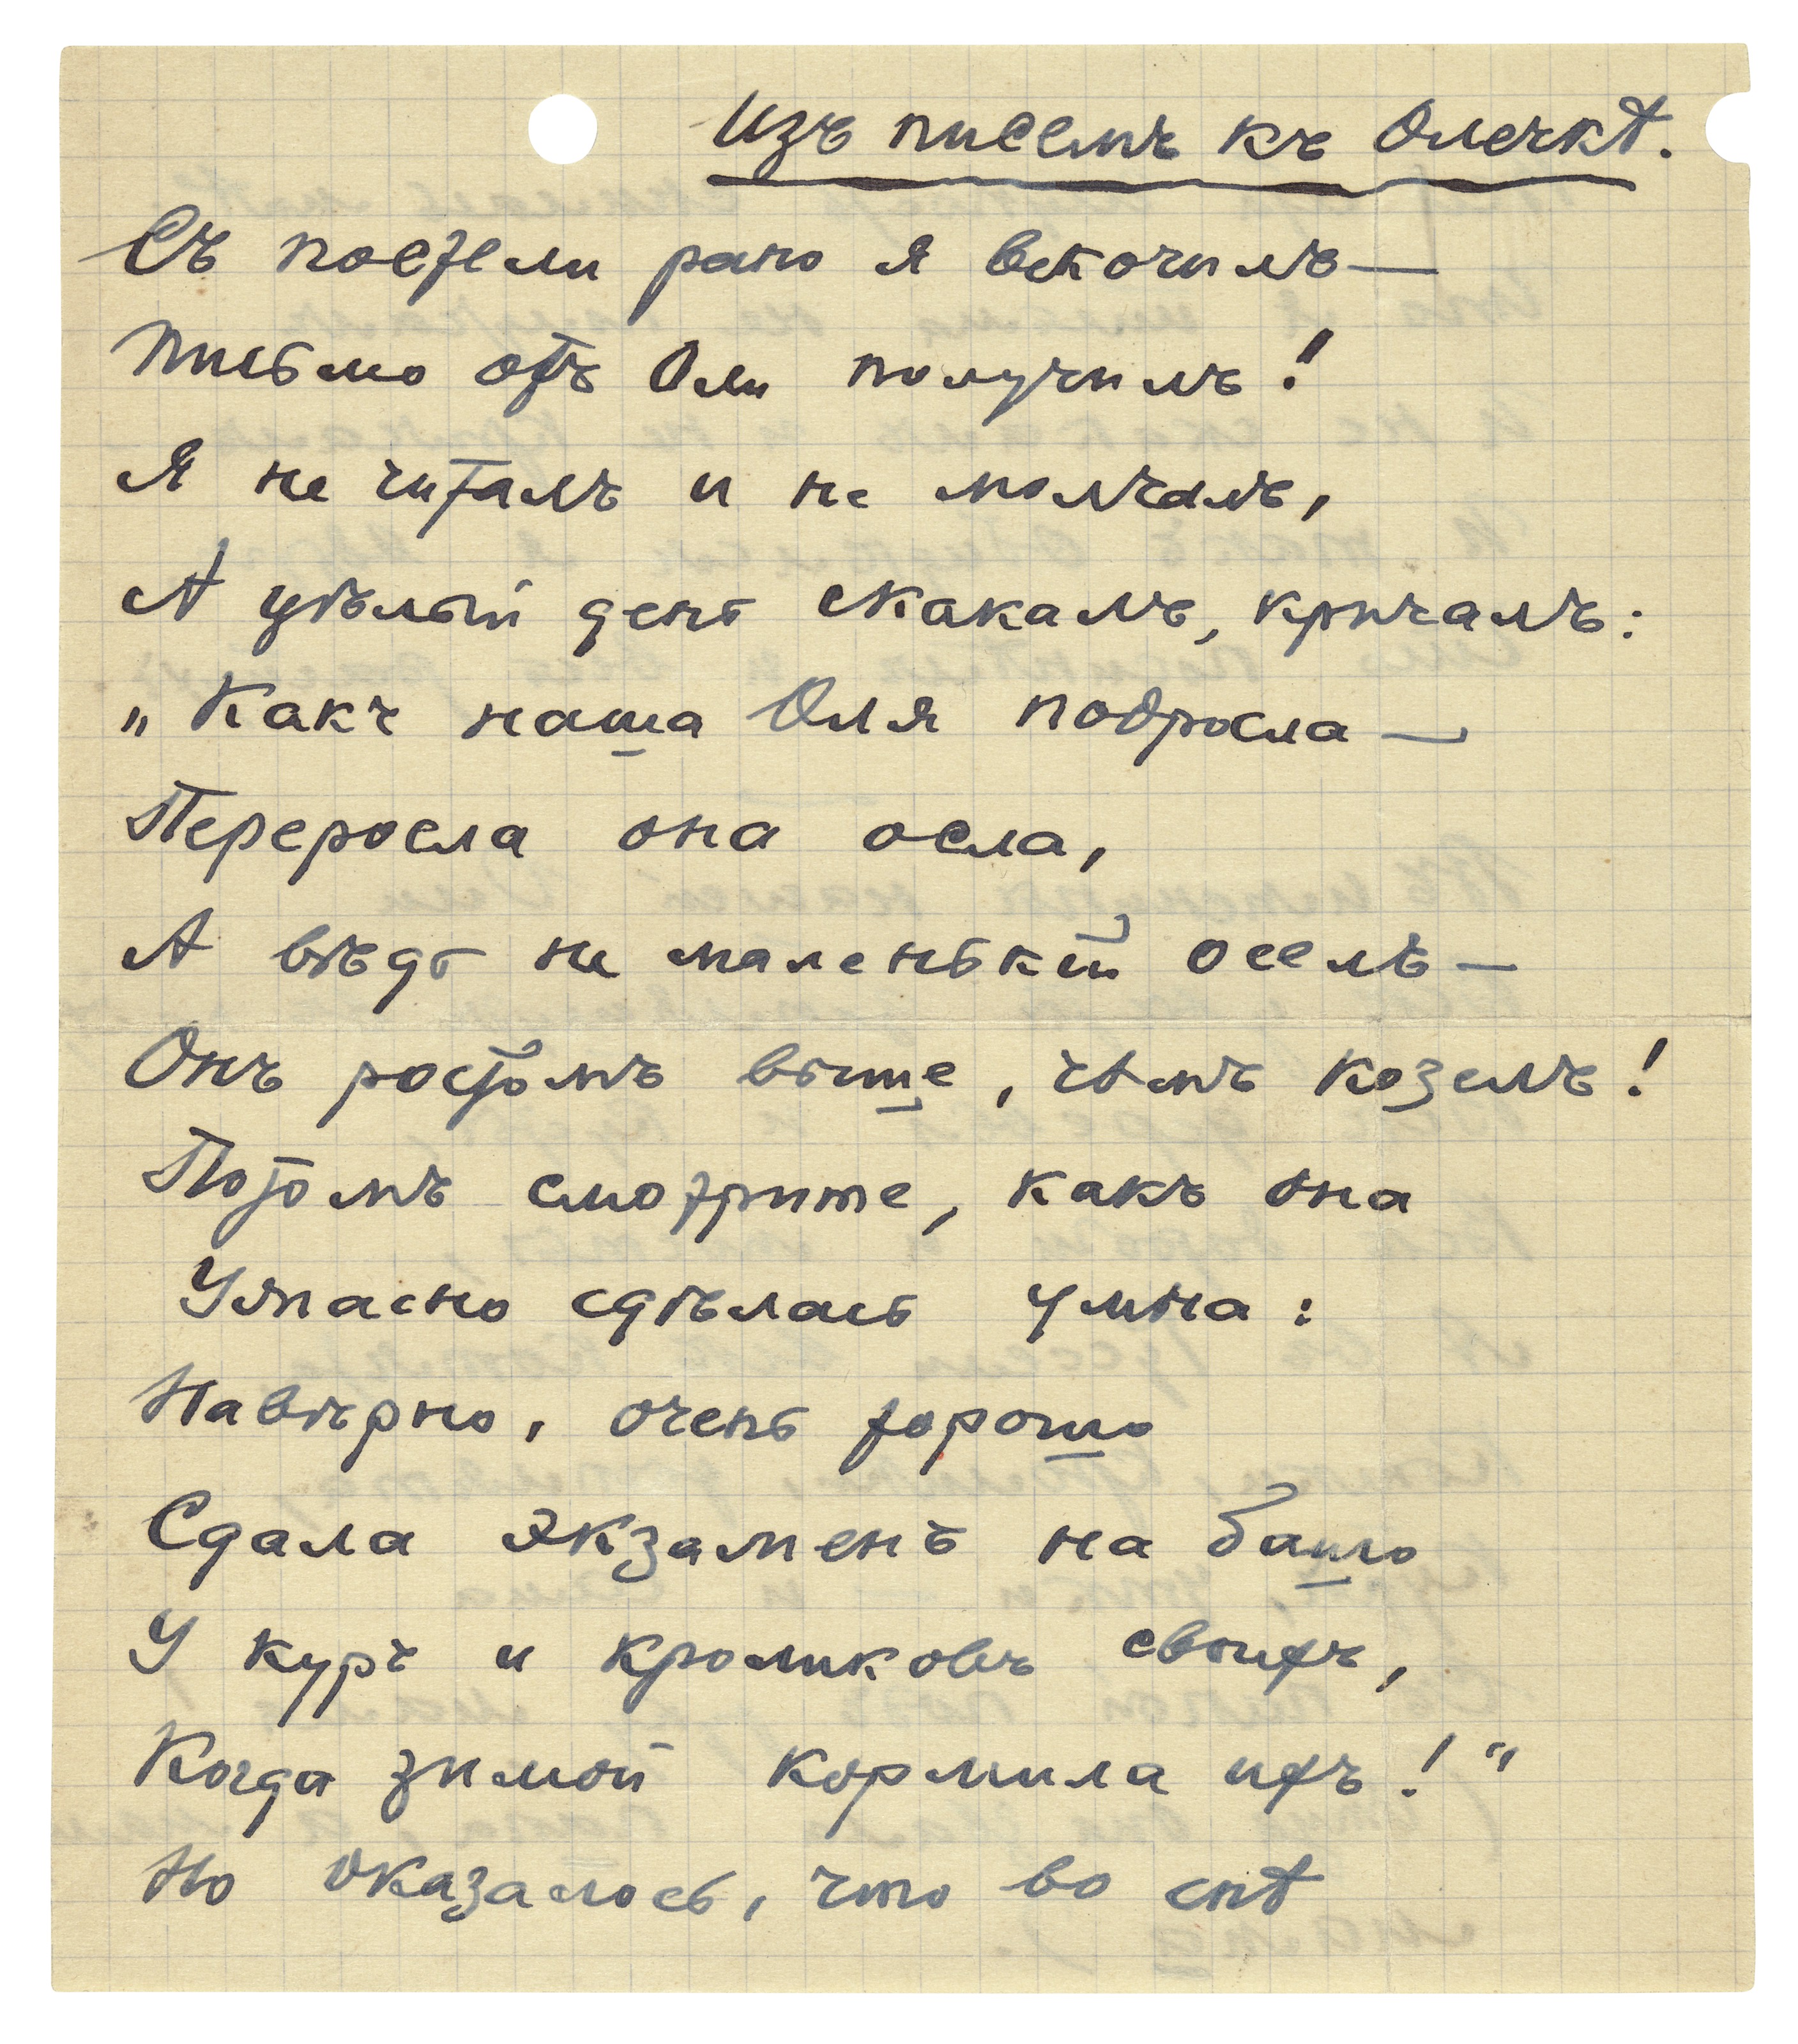 Изъ писемъ къ Олечкѣ.
Съ постели рано я вскочилъ —
Письмо отъ Оли получилъ!
Я не читалъ и не молчалъ,
А цѣлый день скакалъ, кричалъ:
„Какъ наша Оля подросла —
Переросла она осла,
А вѣдь не маленькій оселъ —
Онъ ростомъ выше, чѣмъ козелъ!
Потомъ смотрите, какъ она
Ужасно сдѣлась умна:
Навѣрно, очень хорошо
Сдала экзаменъ на башо
У куръ и кроликовъ своихъ,
Когда зимой кормила ихъ!“
Но оказалось, что во снѣ